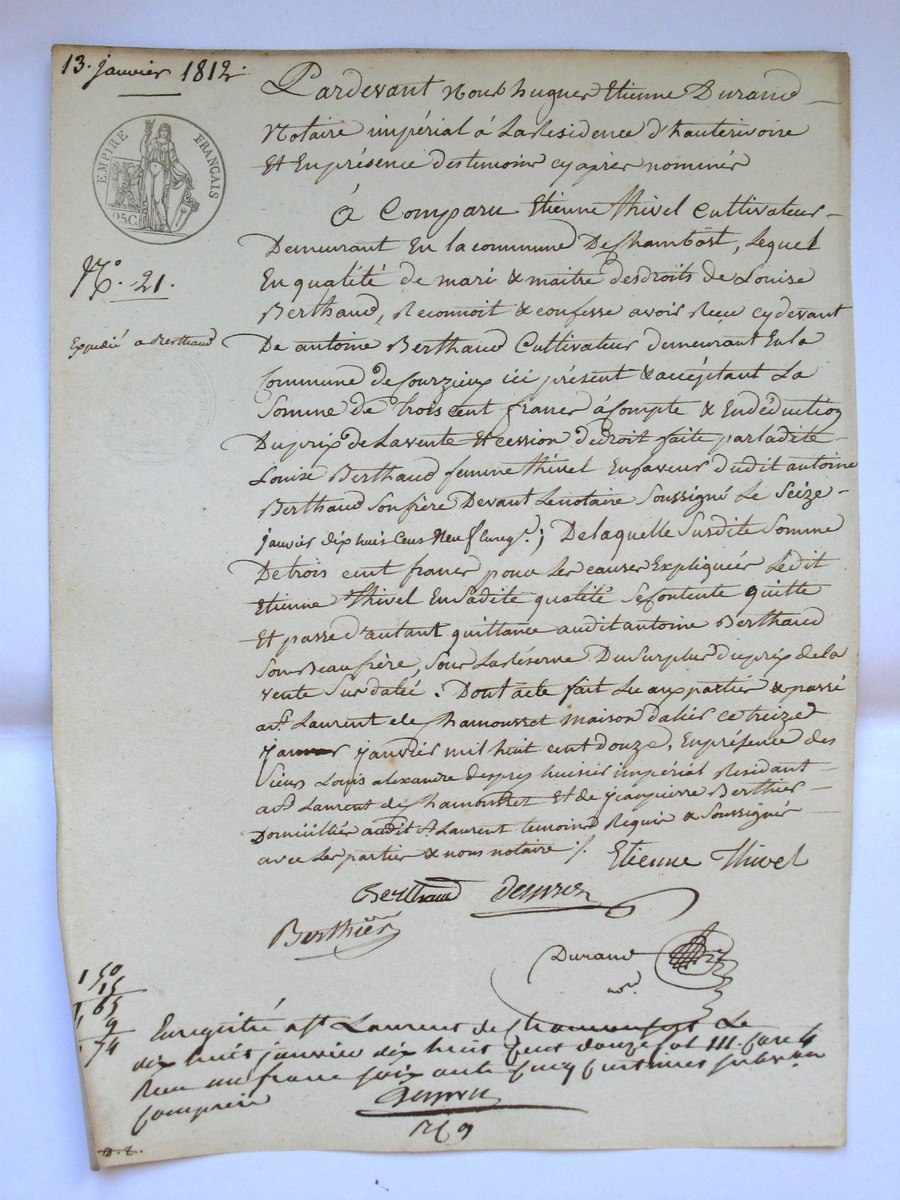 13. janvier 1812.
EMPIRE FRANÇAIS
25C
N.o 21.
Expedié a Berthaud
Pardevant Nous hugues Etienne Durand
Notaire impérial á La Residence d'hauterivoire
Et En présence des temoins cy apres nommés
á Comparu Etienne thivel Cultivateur
Demeurant En la commune De Chambost, Lequel
En qualité de mari & maitre des droits de Louise
Berthaud, Reconnoit & confesse avoir Reçu cy devant
De antoine Berthaud Cultivateur demeurant En la
Commune de Courzieux ici présent & acceptant La
Somme de trois cent francs á Compte & En déduction
Du prix de La vente Et cession de droit faite par ladite
Louise Berthaud femme thivel En faveur dudit antoine
Berthaud Son frère Devant Le notaire Soussigné Le Seize
janvier dix huit Cent Neuf Enreg.é; De laquelle Surdite Somme
De trois cent francs pour Les causes Expliquées Ledit
Etienne thivel En Sadite qualité Se Contente quitte
Et passe d'autant quittance audit antoine Berthaud
Son Beaufrère, Sous La Réserve Du Surplus du prix de la
vente Sus datée. Dont acte fait Lu aux parties & passé
a St Laurent de Chamousset maison d'alier ce treize
janvier mil huit cent douze, En présence des
Sieurs Louis alexandre despres huisier impérial Residant
a St Laurent de Chamousset Et de jean pierre Berthier
Domicillié audit St Laurent temoins Requis & Soussignés
avec Les parties & nous notaire ./. Etienne Thivel
Berthaud despres
Berthier
Durand
no.re
1 50
15
1, 65
9
1 74
Enregistré a St Laurent de Chamousset Le
dix huit janvier dix huit cent douze fol 111. Case 4
Reçu un franc soix ante cinq centimes subvon
comprise